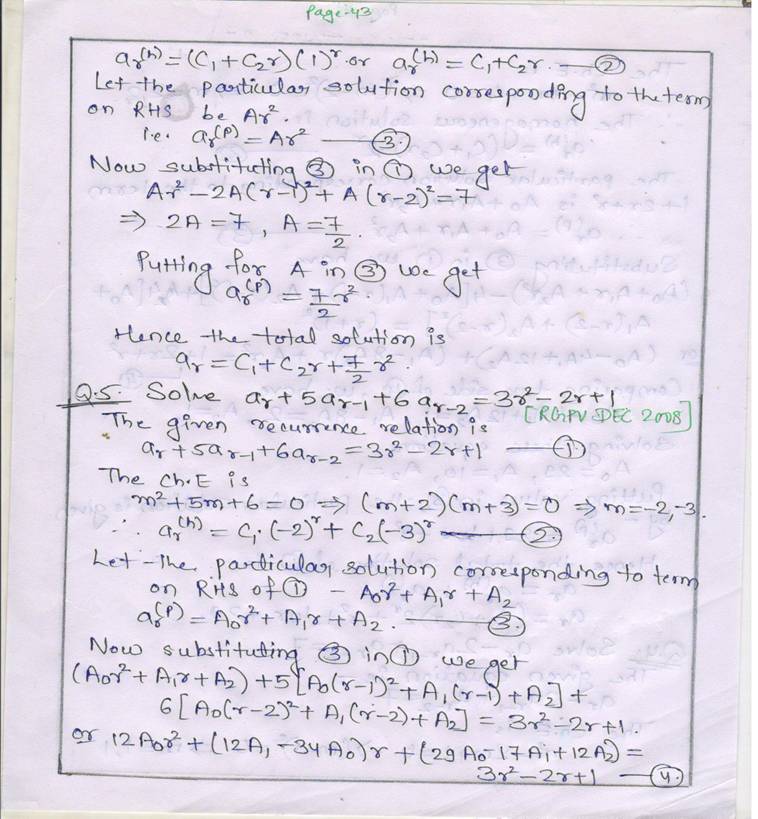 Page-43
aᵣ⁽ʰ⁾ = (C₁ + C₂r) (1)ʳ or aᵣ⁽ʰ⁾ = C₁ + C₂r. — ②
Let the particular solution corresponding to the term
on RHS be Ar².
i.e. aᵣ⁽ᵖ⁾ = Ar² — ③.
Now substituting ③ in ① we get
Ar² - 2A(r-1)² + A(r-2)² = 7
⇒ 2A = 7, A = 7/2
Putting for A in ③ we get
aᵣ⁽ᵖ⁾ = 7/2 r².
Hence the total solution is
aᵣ = C₁ + C₂r + 7/2 r².
Q.5. Solve aᵣ + 5aᵣ₋₁ + 6aᵣ₋₂ = 3r² - 2r + 1
[RGPV DEC 2008]
The given recurrence relation is
aᵣ + 5aᵣ₋₁ + 6aᵣ₋₂ = 3r² - 2r + 1 — ①
The Ch.E is
m² + 5m + 6 = 0 ⇒ (m+2)(m+3) = 0 ⇒ m = -2, -3.
∴ aᵣ⁽ʰ⁾ = C₁.(-2)ʳ + C₂(-3)ʳ — ②.
Let the particular solution corresponding to term
on RHS of ① - A₀r² + A₁r + A₂
aᵣ⁽ᵖ⁾ = A₀r² + A₁r + A₂. — ③.
Now substituting ③ in ① we get
(A₀r² + A₁r + A₂) + 5[A₀(r-1)² + A₁(r-1) + A₂] +
6[A₀(r-2)² + A₁(r-2) + A₂] = 3r² - 2r + 1.
or 12A₀r² + (12A₁ - 34A₀)r + (29A₀ - 17A₁ + 12A₂) =
3r² - 2r + 1 — ④.